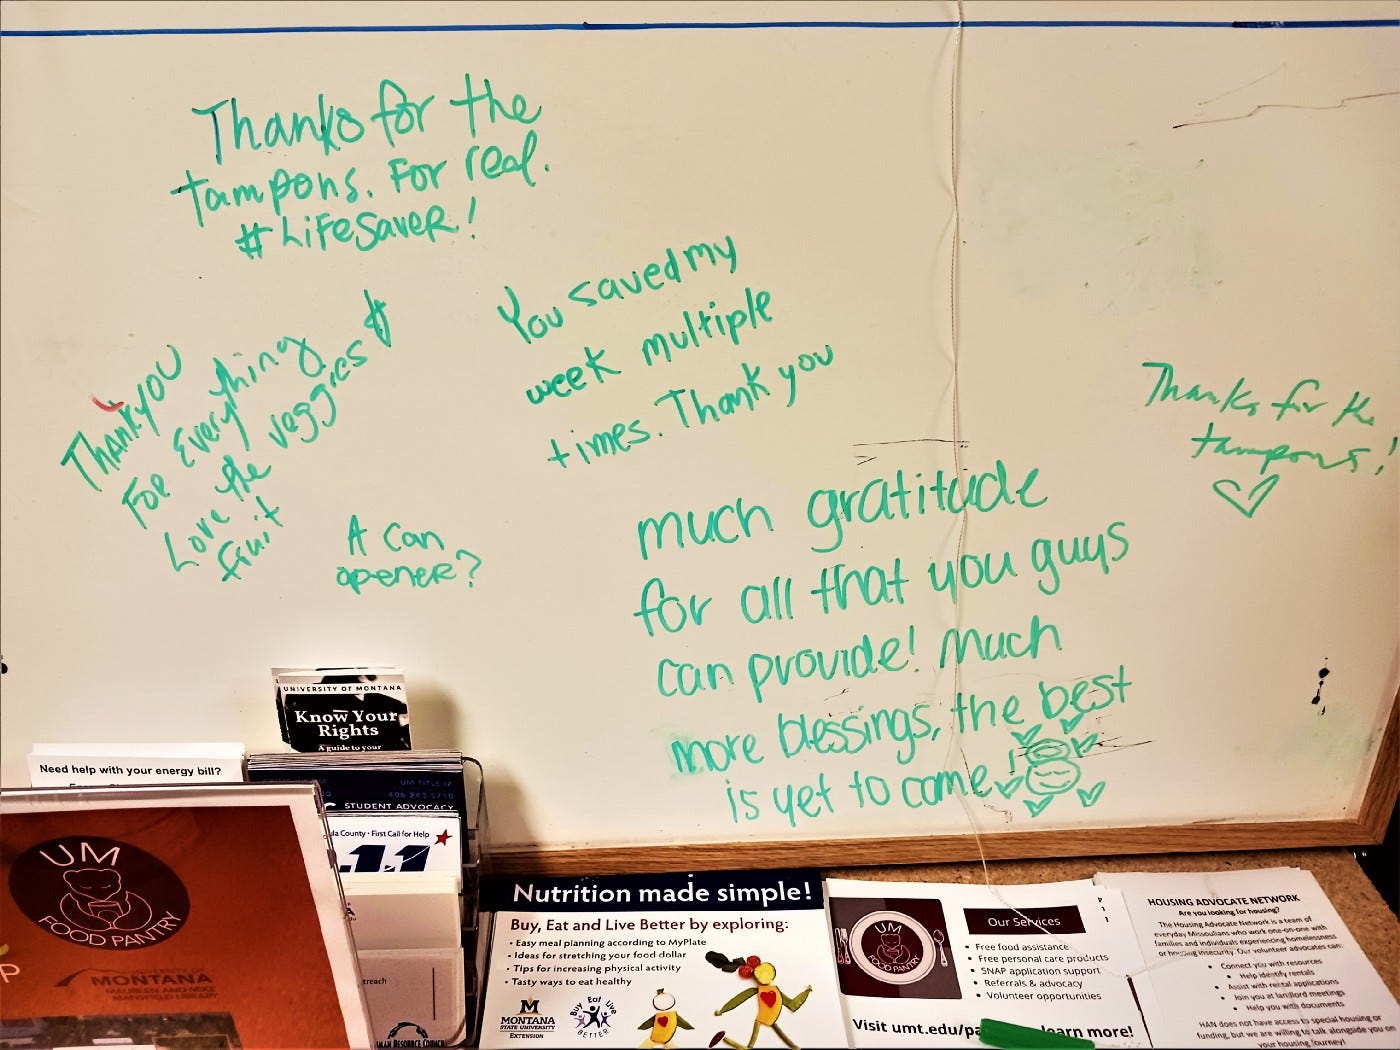 Thanks for the
tampons. For real.
#LifeSaver!
You saved my
week multiple
times. Thank you
Thank you
For Everything
Love the veggies #
fruit
A can
opener?
Thanks for the
tampons!
much gratitude
for all that you guys
can provide! Much
more blessings, the best
is yet to come!
UNIVERSITY OF MONTANA
Know Your
Rights
A guide to your
Need help with your energy bill?
UM TITLE IX
STUDENT ADVOCACY
County • First Call for Help
UM
FOOD PANTRY
MONTANA
MAUREEN AND MIKE
MANSFIELD LIBRARY
Nutrition made simple!
Buy, Eat and Live Better by exploring:
• Easy meal planning according to MyPlate
• Ideas for stretching your food dollar
• Tips for increasing physical activity
• Tasty ways to eat healthy
M
MONTANA
STATE UNIVERSITY
EXTENSION
Buy Eat Live
BETTER
UM
FOOD PANTRY
Our Services
• Free food assistance
• Free personal care products
• SNAP application support
• Referrals & advocacy
• Volunteer opportunities
Visit umt.edu/pa learn more!
HOUSING ADVOCATE NETWORK
Are you looking for housing?
The Housing Advocate Network is a team of
everyday Missoulians who work one-on-one with
families and individuals experiencing homelessness
or housing insecurity. Our volunteer advocates can:
• Connect you with resources
• Help identify rentals
• Assist with rental applications
• Join you at landlord meetings
• Help you with documents
HAN does not have access to special housing or
funding, but we are willing to talk alongside you on
your housing journey!